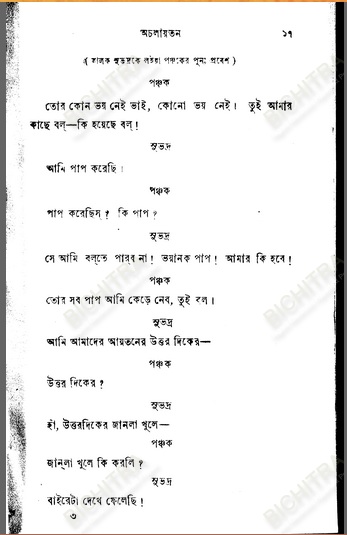 অচলায়তন ১৭
( বালক সুভদ্রকে লইয়া পঞ্চকের পুনঃ প্রবেশ )
পঞ্চক
তোর কোন ভয় নেই ভাই, কোনো ভয় নেই। তুই আমার
কাছে বল্—কি হয়েছে বল্!
সুভদ্র
আমি পাপ করেছি।
পঞ্চক
পাপ করেছিস্? কি পাপ?
সুভদ্র
সে আমি বল্‌তে পারব না! ভয়ানক পাপ! আমার কি হবে!
পঞ্চক
তোর সব পাপ আমি কেড়ে নেব, তুই বল।
সুভদ্র
আমি আমাদের আয়তনের উত্তর দিকের—
পঞ্চক
উত্তর দিকের?
সুভদ্র
হাঁ, উত্তরদিকের জানলা খুলে—
পঞ্চক
জান্‌লা খুলে কি করলি?
সুভদ্র
বাইরেটা দেখে ফেলেছি!
৩
BICHITRA
BICHITRA
BICHITRA
BICHITRA
BICHITRA
BICHITRA